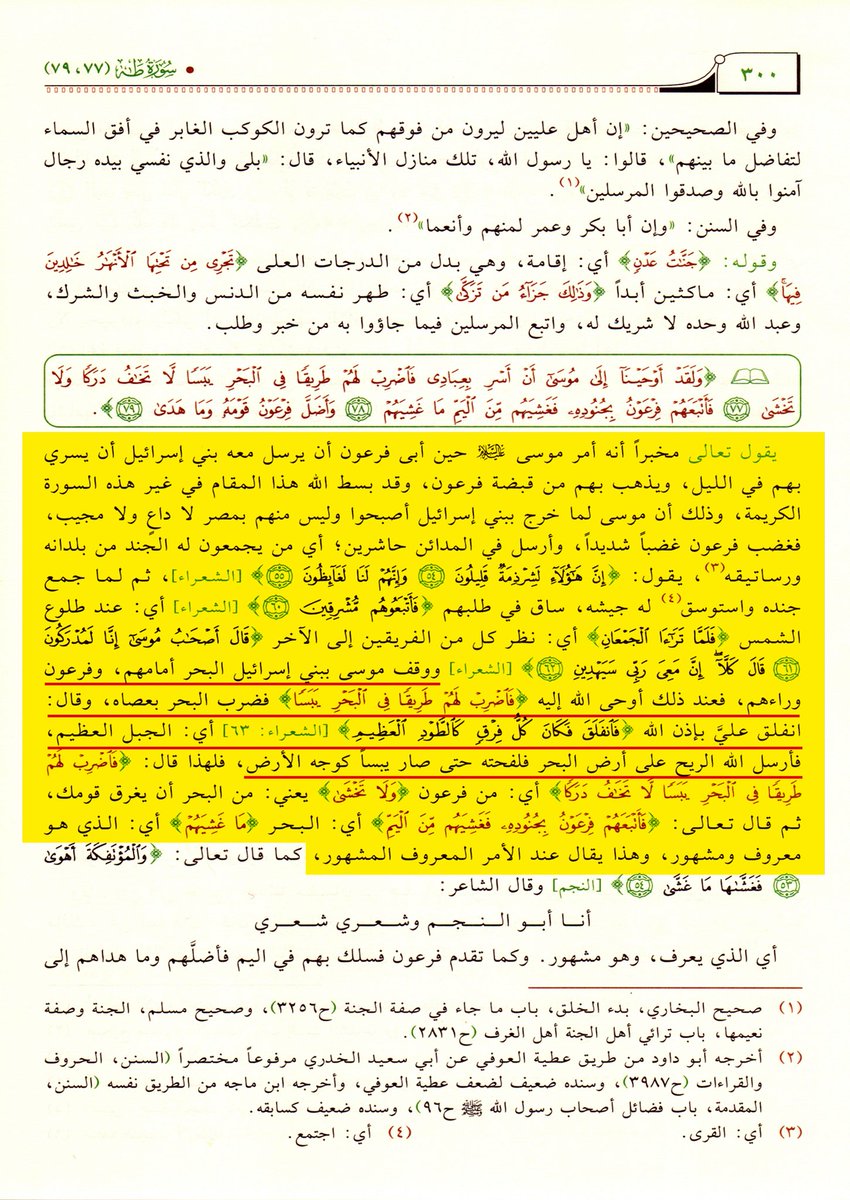 ٣٠٠
• سُورَةُ طٰهٰ (٧٧، ٧٩)
وفي الصحيحين: «إن أهل عليين ليرون من فوقهم كما ترون الكوكب الغابر في أفق السماء
لتفاضل ما بينهم»، قالوا: يا رسول الله، تلك منازل الأنبياء، قال: «بلى والذي نفسي بيده رجال
آمنوا بالله وصدقوا المرسلين»(١).
وفي السنن: «وإن أبا بكر وعمر لمنهم وأنعما»(٢).
وقوله: ﴿جَنَّٰتُ عَدْنٍ﴾ أي: إقامة، وهي بدل من الدرجات العلى ﴿تَجْرِى مِن تَحْتِهَا ٱلْأَنْهَٰرُ خَٰلِدِينَ
فِيهَا﴾ أي: ماكثين أبداً ﴿وَذَٰلِكَ جَزَآءُ مَن تَزَكَّىٰ﴾ أي: طهر نفسه من الدنس والخبث والشرك،
وعبد الله وحده لا شريك له، واتبع المرسلين فيما جاؤوا به من خبر وطلب.
﴿وَلَقَدْ أَوْحَيْنَآ إِلَىٰ مُوسَىٰٓ أَنْ أَسْرِ بِعِبَادِى فَٱضْرِبْ لَهُمْ طَرِيقًا فِى ٱلْبَحْرِ يَبَسًا لَّا تَخَٰفُ دَرَكًا وَلَا
تَخْشَىٰ ﴿٧٧﴾ فَأَتْبَعَهُمْ فِرْعَوْنُ بِجُنُودِهِۦ فَغَشِيَهُم مِّنَ ٱلْيَمِّ مَا غَشِيَهُمْ ﴿٧٨﴾ وَأَضَلَّ فِرْعَوْنُ قَوْمَهُۥ وَمَا هَدَىٰ ﴿٧٩﴾﴾.
يقول تعالى مخبراً أنه أمر موسى عليه السلام حين أبى فرعون أن يرسل معه بني إسرائيل أن يسري
بهم في الليل، ويذهب بهم من قبضة فرعون، وقد بسط الله هذا المقام في غير هذه السورة
الكريمة، وذلك أن موسى لما خرج ببني إسرائيل أصبحوا وليس منهم بمصر لا داعٍ ولا مجيب،
فغضب فرعون غضباً شديداً، وأرسل في المدائن حاشرين؛ أي من يجمعون له الجند من بلدانه
ورساتيقه(٣)، يقول: ﴿إِنَّ هَٰٓؤُلَآءِ لَشِرْذِمَةٌ قَلِيلُونَ ﴿٥٤﴾ وَإِنَّهُمْ لَنَا لَغَآئِظُونَ ﴿٥٥﴾﴾ [الشعراء]، ثم لما جمع
جنده واستوسق(٤) له جيشه، ساق في طلبهم ﴿فَأَتْبَعُوهُم مُّشْرِقِينَ ﴿٦٠﴾﴾ [الشعراء] أي: عند طلوع
الشمس ﴿فَلَمَّا تَرَٰٓءَا ٱلْجَمْعَانِ﴾ أي: نظر كل من الفريقين إلى الآخر ﴿قَالَ أَصْحَٰبُ مُوسَىٰٓ إِنَّا لَمُدْرَكُونَ
﴿٦١﴾ قَالَ كَلَّآ إِنَّ مَعِىَ رَبِّى سَيَهْدِينِ ﴿٦٢﴾﴾ [الشعراء] ووقف موسى ببني إسرائيل البحر أمامهم، وفرعون
وراءهم، فعند ذلك أوحى الله إليه ﴿فَٱضْرِبْ لَهُمْ طَرِيقًا فِى ٱلْبَحْرِ يَبَسًا﴾ فضرب البحر بعصاه، وقال:
انفلق عليَّ بإذن الله ﴿فَٱنفَلَقَ فَكَانَ كُلُّ فِرْقٍ كَٱلطَّوْدِ ٱلْعَظِيمِ﴾ [الشعراء: ٦٣] أي: الجبل العظيم،
فأرسل الله الريح على أرض البحر فلفحته حتى صار يبساً كوجه الأرض، فلهذا قال: ﴿فَٱضْرِبْ لَهُمْ
طَرِيقًا فِى ٱلْبَحْرِ يَبَسًا لَّا تَخَٰفُ دَرَكًا﴾ أي: من فرعون ﴿وَلَا تَخْشَىٰ﴾ يعني: من البحر أن يغرق قومك،
ثم قال تعالى: ﴿فَأَتْبَعَهُمْ فِرْعَوْنُ بِجُنُودِهِۦ فَغَشِيَهُم مِّنَ ٱلْيَمِّ﴾ أي: البحر ﴿مَا غَشِيَهُمْ﴾ أي: الذي هو
معروف ومشهور، وهذا يقال عند الأمر المعروف المشهور، كما قال تعالى: ﴿وَٱلْمُؤْتَفِكَةَ أَهْوَىٰ
﴿٥٣﴾ فَغَشَّىٰهَا مَا غَشَّىٰ ﴿٥٤﴾﴾ [النجم] وقال الشاعر:
أنا أبو النجم وشعري شعري
أي الذي يعرف، وهو مشهور. وكما تقدم فرعون فسلك بهم في اليم فأضلَّهم وما هداهم إلى
(١) صحيح البخاري، بدء الخلق، باب ما جاء في صفة الجنة (ح٣٢٥٦)، وصحيح مسلم، الجنة وصفة
نعيمها، باب ترائي أهل الجنة أهل الغرف (ح٢٨٣١).
(٢) أخرجه أبو داود من طريق عطية العوفي عن أبي سعيد الخدري مرفوعاً مختصراً (السنن، الحروف
والقراءات (ح٣٩٨٧)، وسنده ضعيف لضعف عطية العوفي، وأخرجه ابن ماجه من الطريق نفسه (السنن،
المقدمة، باب فضائل أصحاب رسول الله ﷺ ح٩٦)، وسنده ضعيف كسابقه.
(٣) أي: القرى. (٤) أي: اجتمع.